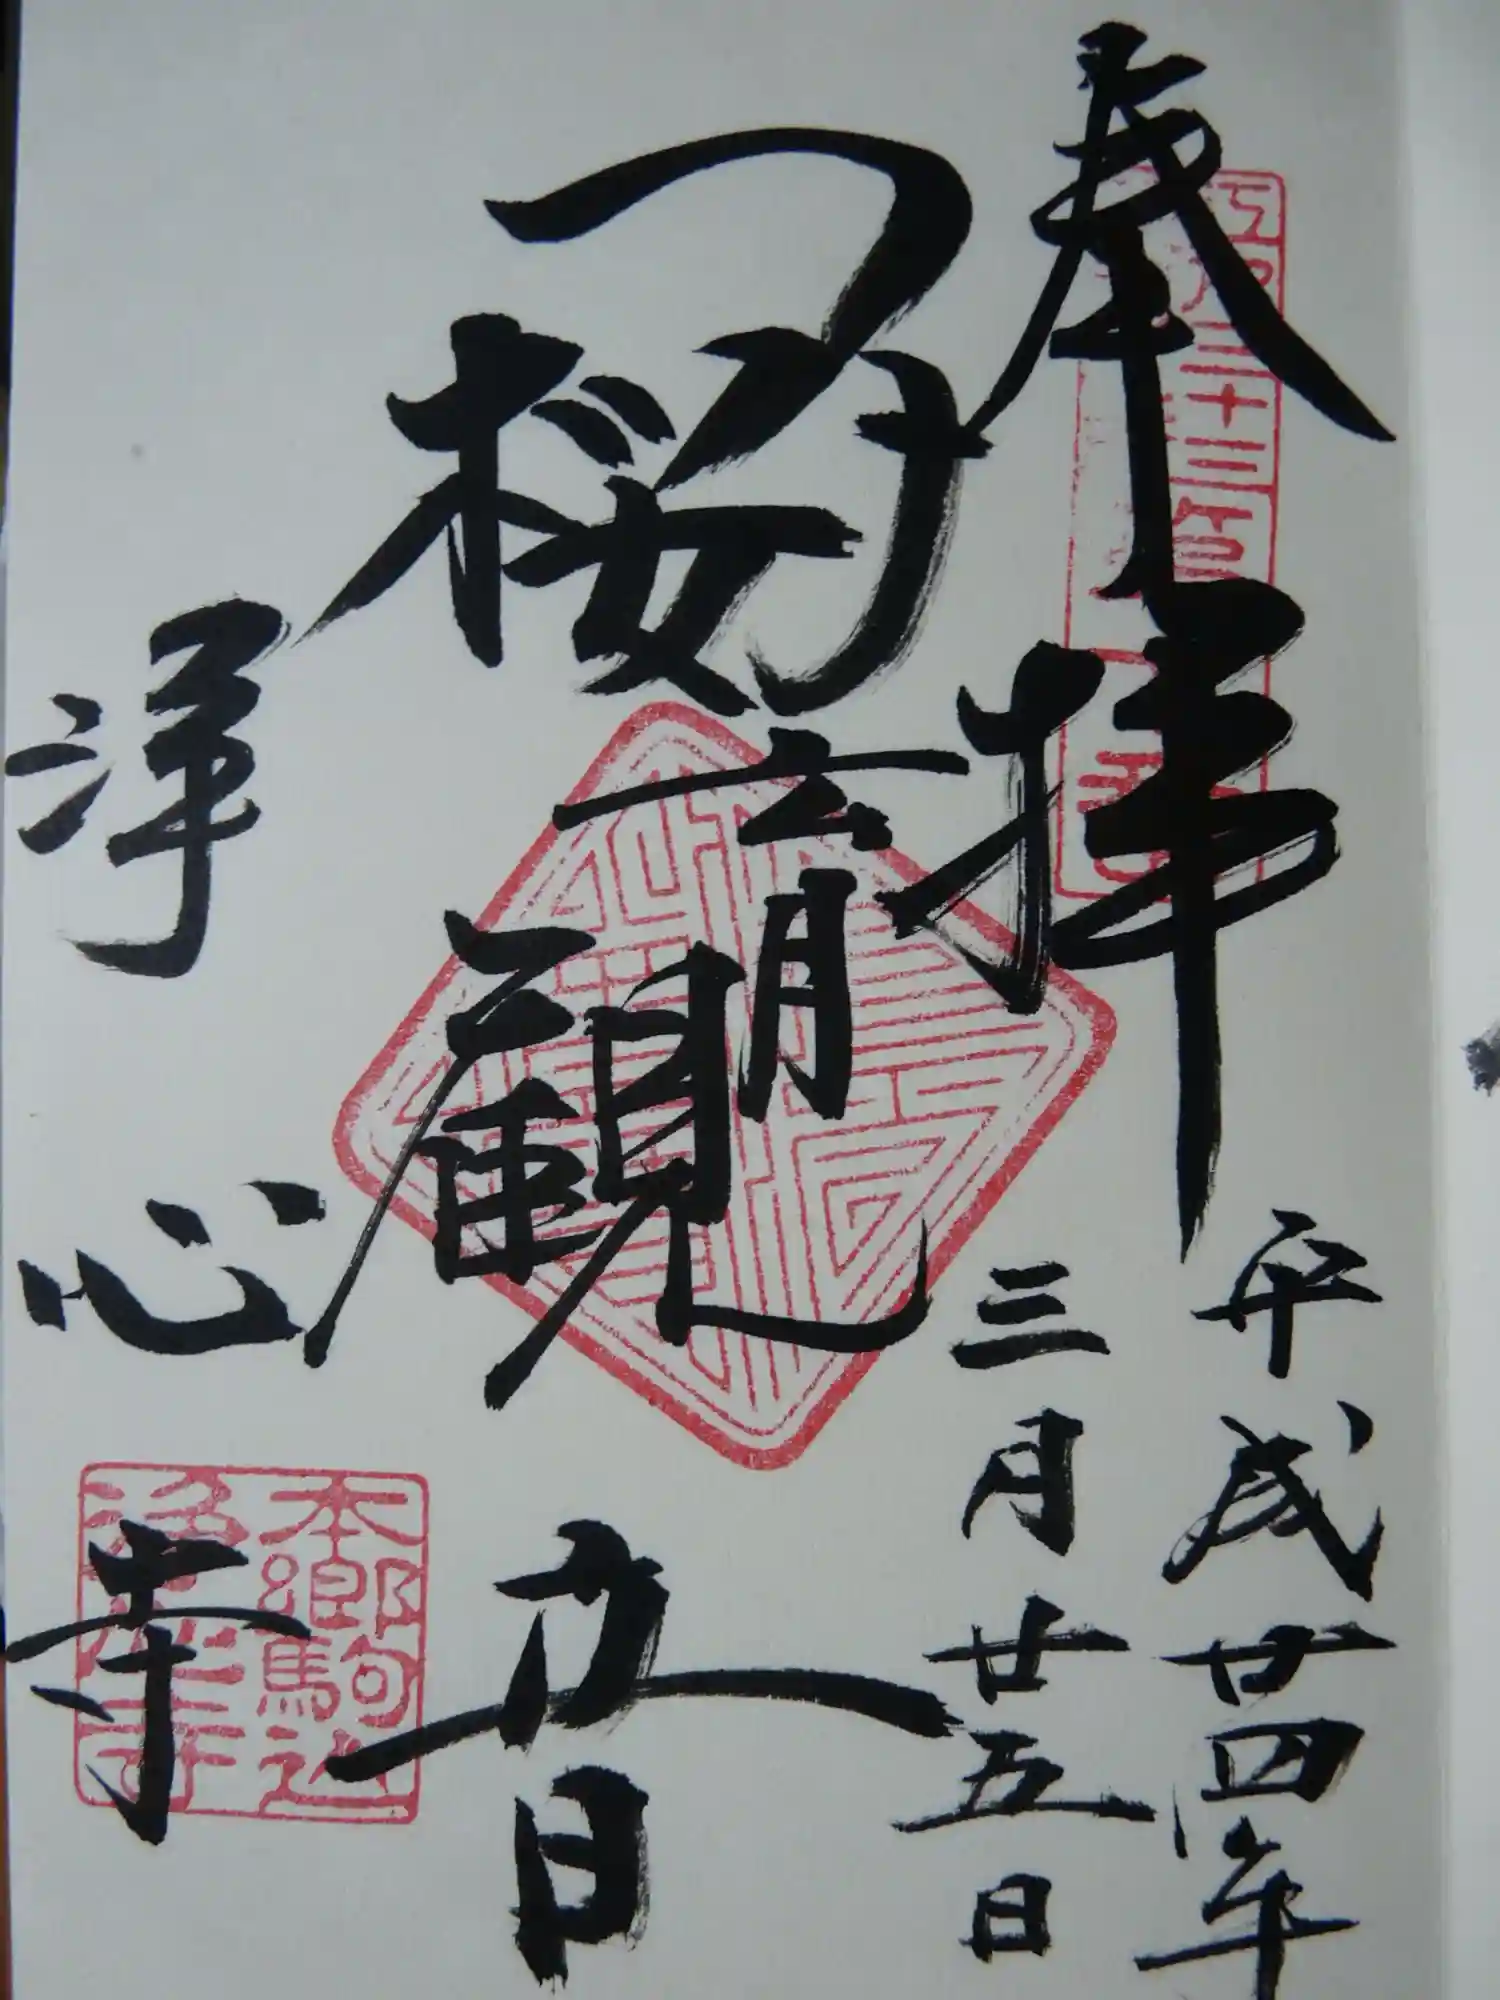 奉拝
平成廿四年
三月廿五日
子育
桜観音
浄心寺
江戸三十三
本郷駒込
浄心寺